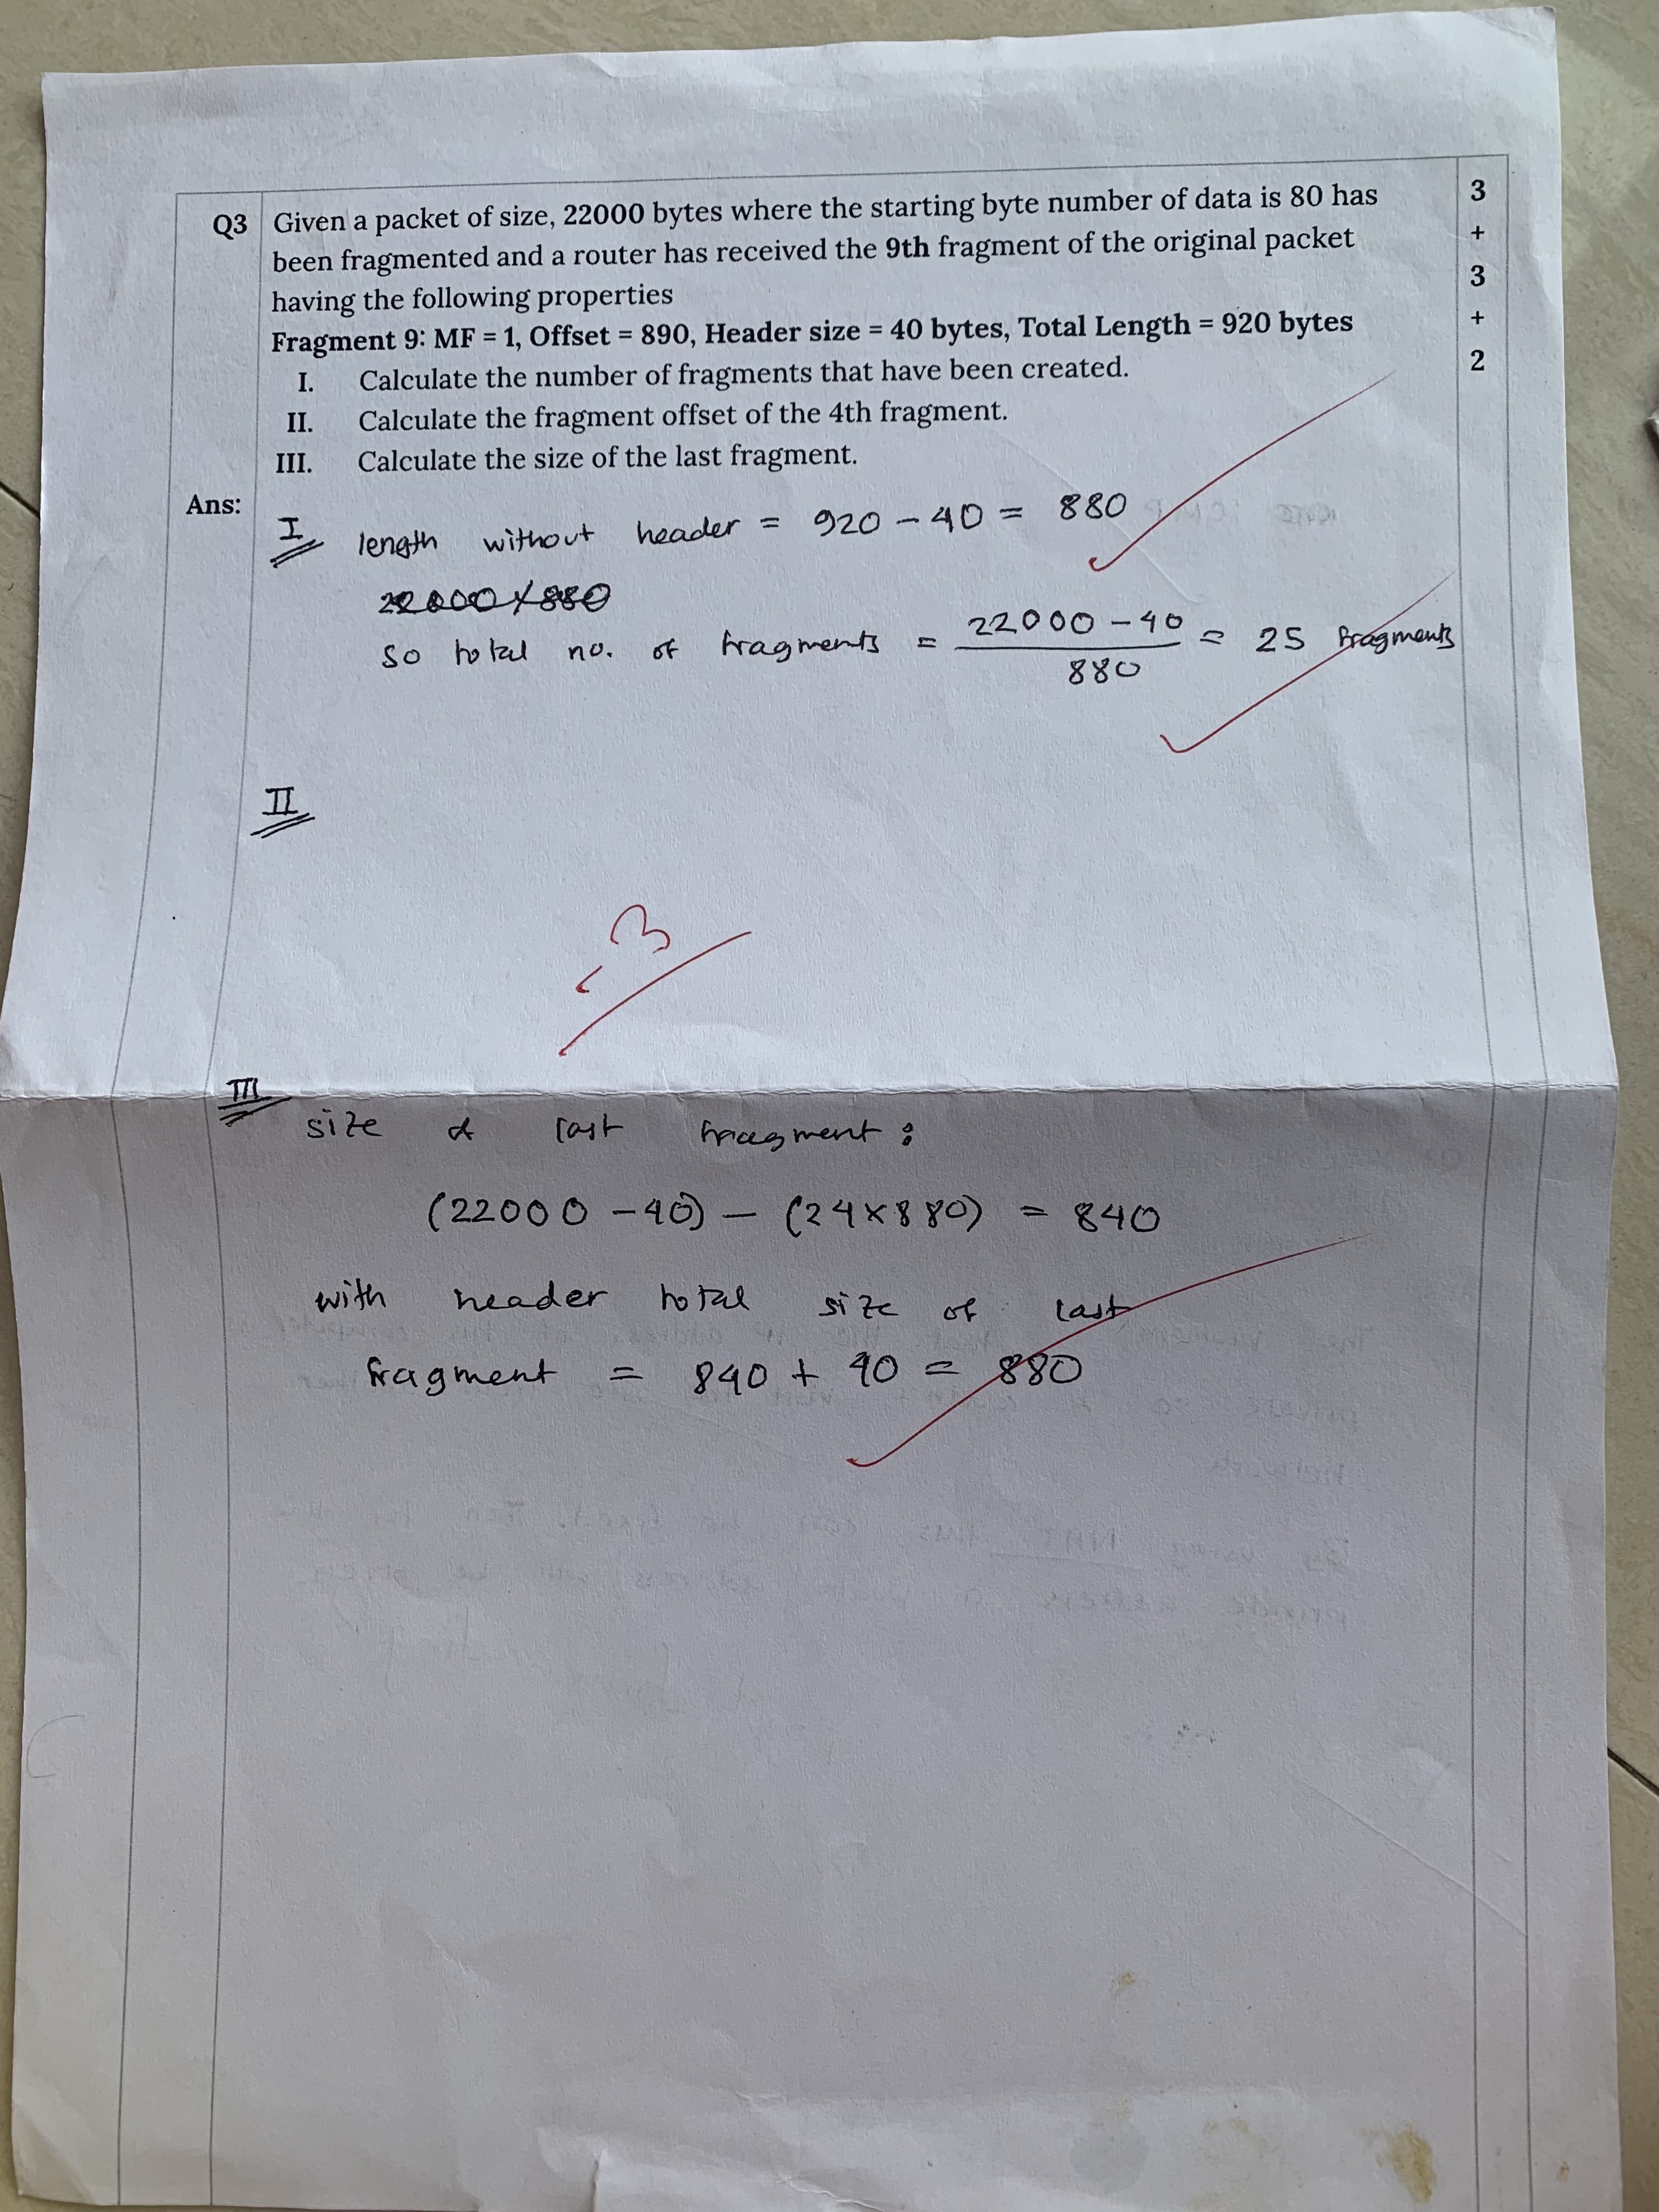 Q3 Given a packet of size, 22000 bytes where the starting byte number of data is 80 has
been fragmented and a router has received the 9th fragment of the original packet
having the following properties
Fragment 9: MF = 1, Offset = 890, Header size = 40 bytes, Total Length = 920 bytes
I. Calculate the number of fragments that have been created.
II. Calculate the fragment offset of the 4th fragment.
III. Calculate the size of the last fragment.
3
+
3
+
2
Ans:
I length without header = 920 - 40 = 880
22000 x 880
so total no. of fragments = 22000 - 40 / 880 = 25 fragments
II
-3
III
size of last fragment :
(22000 - 40) - (24 x 880) = 840
with header total size of last
fragment = 840 + 40 = 880